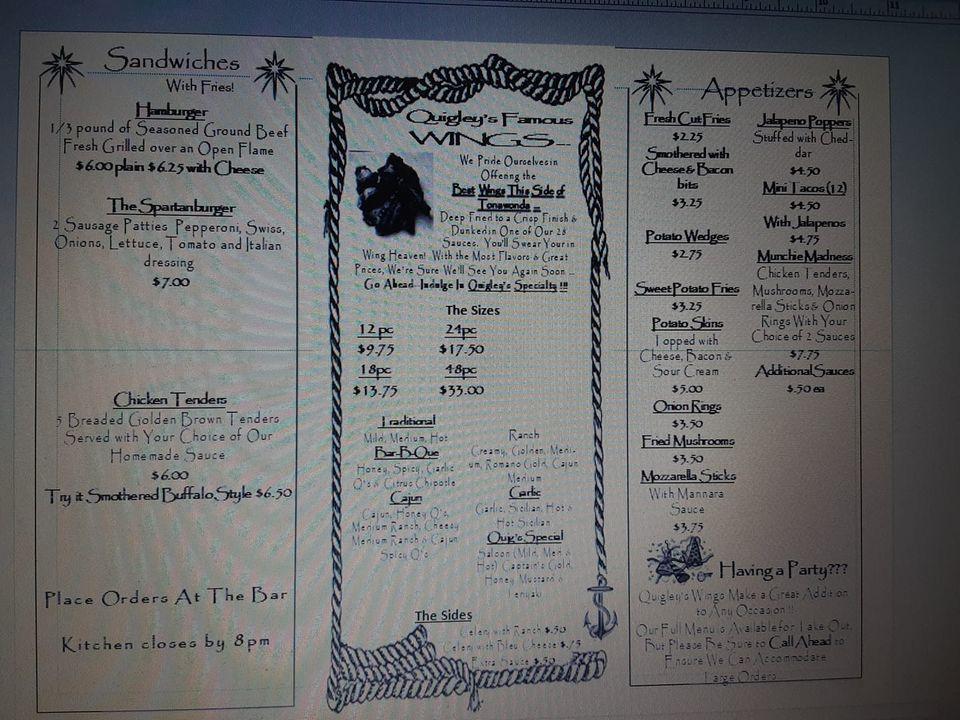 10
11
Sandwiches
With Fries!
Hamburger
1/3 pound of Seasoned Ground Beef
Fresh Grilled over an Open Flame
$6.00 plain $6.25 with Cheese
The Spartanburger
2 Sausage Patties Pepperoni, Swiss,
Onions, Lettuce, Tomato and Italian
dressing
$7.00
Chicken Tenders
5 Breaded Golden Brown Tenders
Served with Your Choice of Our
Homemade Sauce
$6.00
Try it Smothered Buffalo Style $6.50
Place Orders At The Bar
Kitchen closes by 8pm
Quigley's Famous
WINGS...
We Pride Ourselves in
Offering the
Best Wings This Side of
Tonawonda ...
Deep Fried to a Crisp Finish &
Dunked in One of Our 28
Sauces. You'll Swear Your in
Wing Heaven! With the Most Flavors & Great
Prices, We're Sure We'll See You Again Soon ...
Go Ahead Indulge In Quigley's Specialty !!!
The Sizes
12 pc 24pc
$9.75 $17.50
18pc 48pc
$13.75 $33.00
Traditional
Mild, Medium, Hot
Bar-B-Que
Honey, Spicy, Garlic
Q's & Citrus Chipotle
Cajun
Cajun, Honey Q's,
Medium Ranch, Cheesy
Medium Ranch & Cajun
Spicy Q's
Ranch
Creamy, Golden, Medi-
um, Romano Gold, Cajun
Medium
Garlic
Garlic, Sicilian, Hot &
Hot Sicilian
Quig's Special
Saloon (Mild, Med &
Hot) Captain's Gold,
Honey Mustard &
Teriyaki
The Sides
Celery with Ranch $.50
Celery with Bleu Cheese $.75
Extra Sauce $.50
Appetizers
Fresh Cut Fries
$2.25
Smothered with
Cheese & Bacon
bits
$3.25
Potato Wedges
$2.75
Sweet Potato Fries
$3.25
Potato Skins
Topped with
Cheese, Bacon &
Sour Cream
$5.00
Onion Rings
$3.50
Fried Mushrooms
$3.50
Mozzarella Sticks
With Marinara
Sauce
$3.75
Jalapeno Poppers
Stuffed with Ched-
dar
$4.50
Mini Tacos (12)
$4.50
With Jalapenos
$4.75
Munchie Madness
Chicken Tenders,
Mushrooms, Mozza-
rella Sticks & Onion
Rings With Your
Choice of 2 Sauces
$7.75
Additional Sauces
$.50 ea
Having a Party???
Quigley's Wings Make a Great Addition
to Any Occasion!!
Our Full Menu is Available for Take Out,
But Please Be Sure to Call Ahead to
Ensure We Can Accommodate
Large Orders...